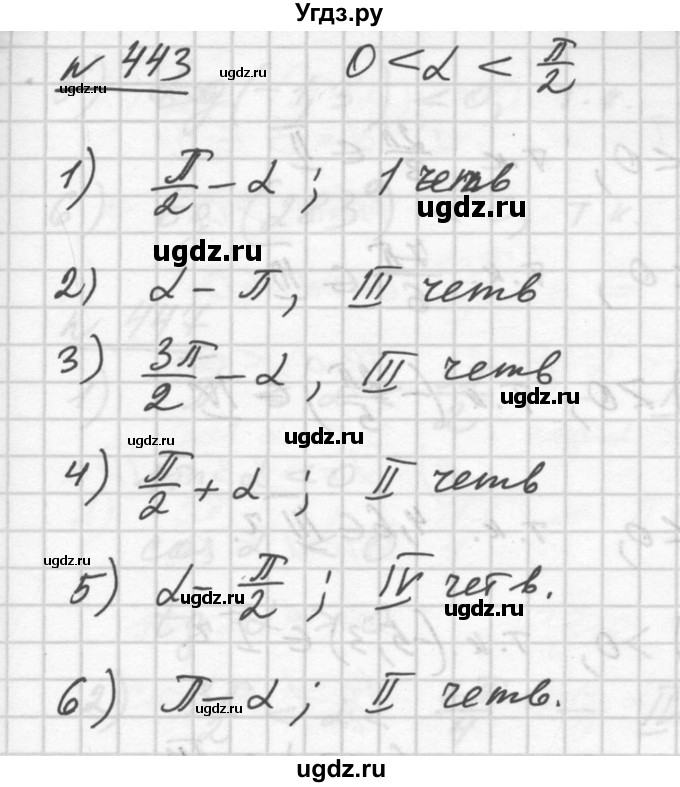 Угдз.ру
№ 443 ugdz.ru 0 < α < π/2
ugdz.ru
1) π/2 - α ; 1 четв
ugdz.ru
ugdz.ru
2) α - π, III четв
3) 3π/2 - α, III четв
ugdz.ru
ugdz.ru
ugdz.ru
4) π/2 + α ; II четв
ugdz.ru
5) α - π/2 ; IV четв.
ugdz.ru ugdz.ru
6) π - α ; II четв.
ugdz.ru
ugdz.ru